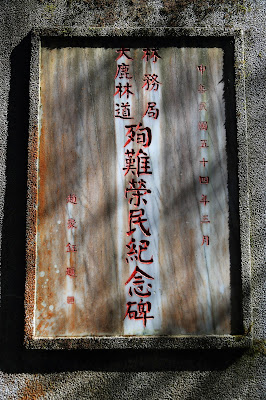 中華民國五十四年三月
林務局
大鹿林道
殉難榮民紀念碑
趙聚鈺題